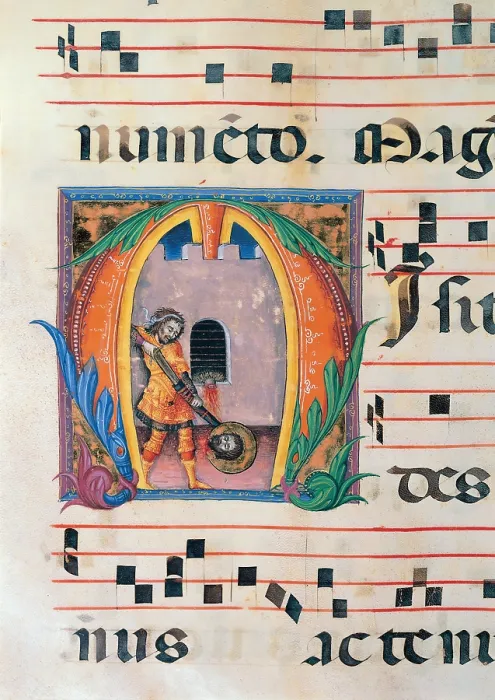 numēto. Mag
Iſit
des
nus ac tenu